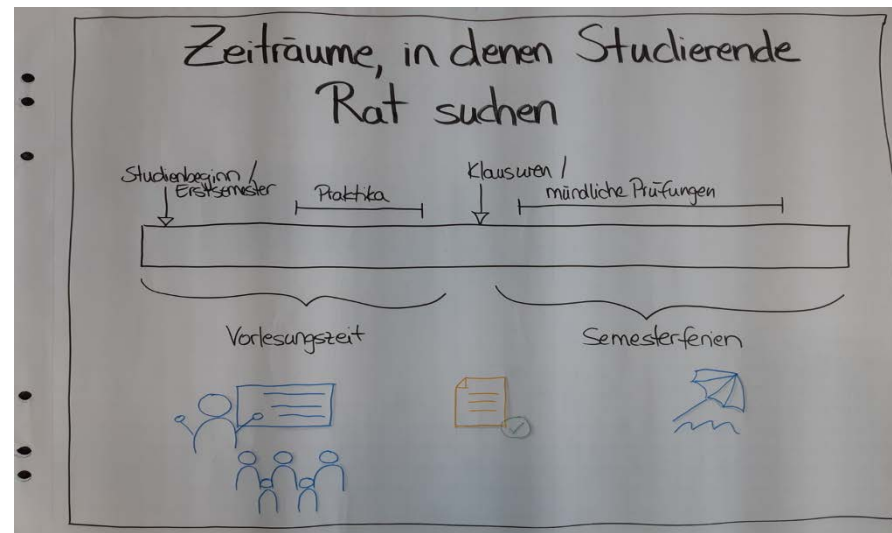 Zeiträume, in denen Studierende
Rat suchen
Studienbeginn /
Erstsemester
Praktika
Klausuren /
mündliche Prüfungen
Vorlesungszeit
Semesterferien